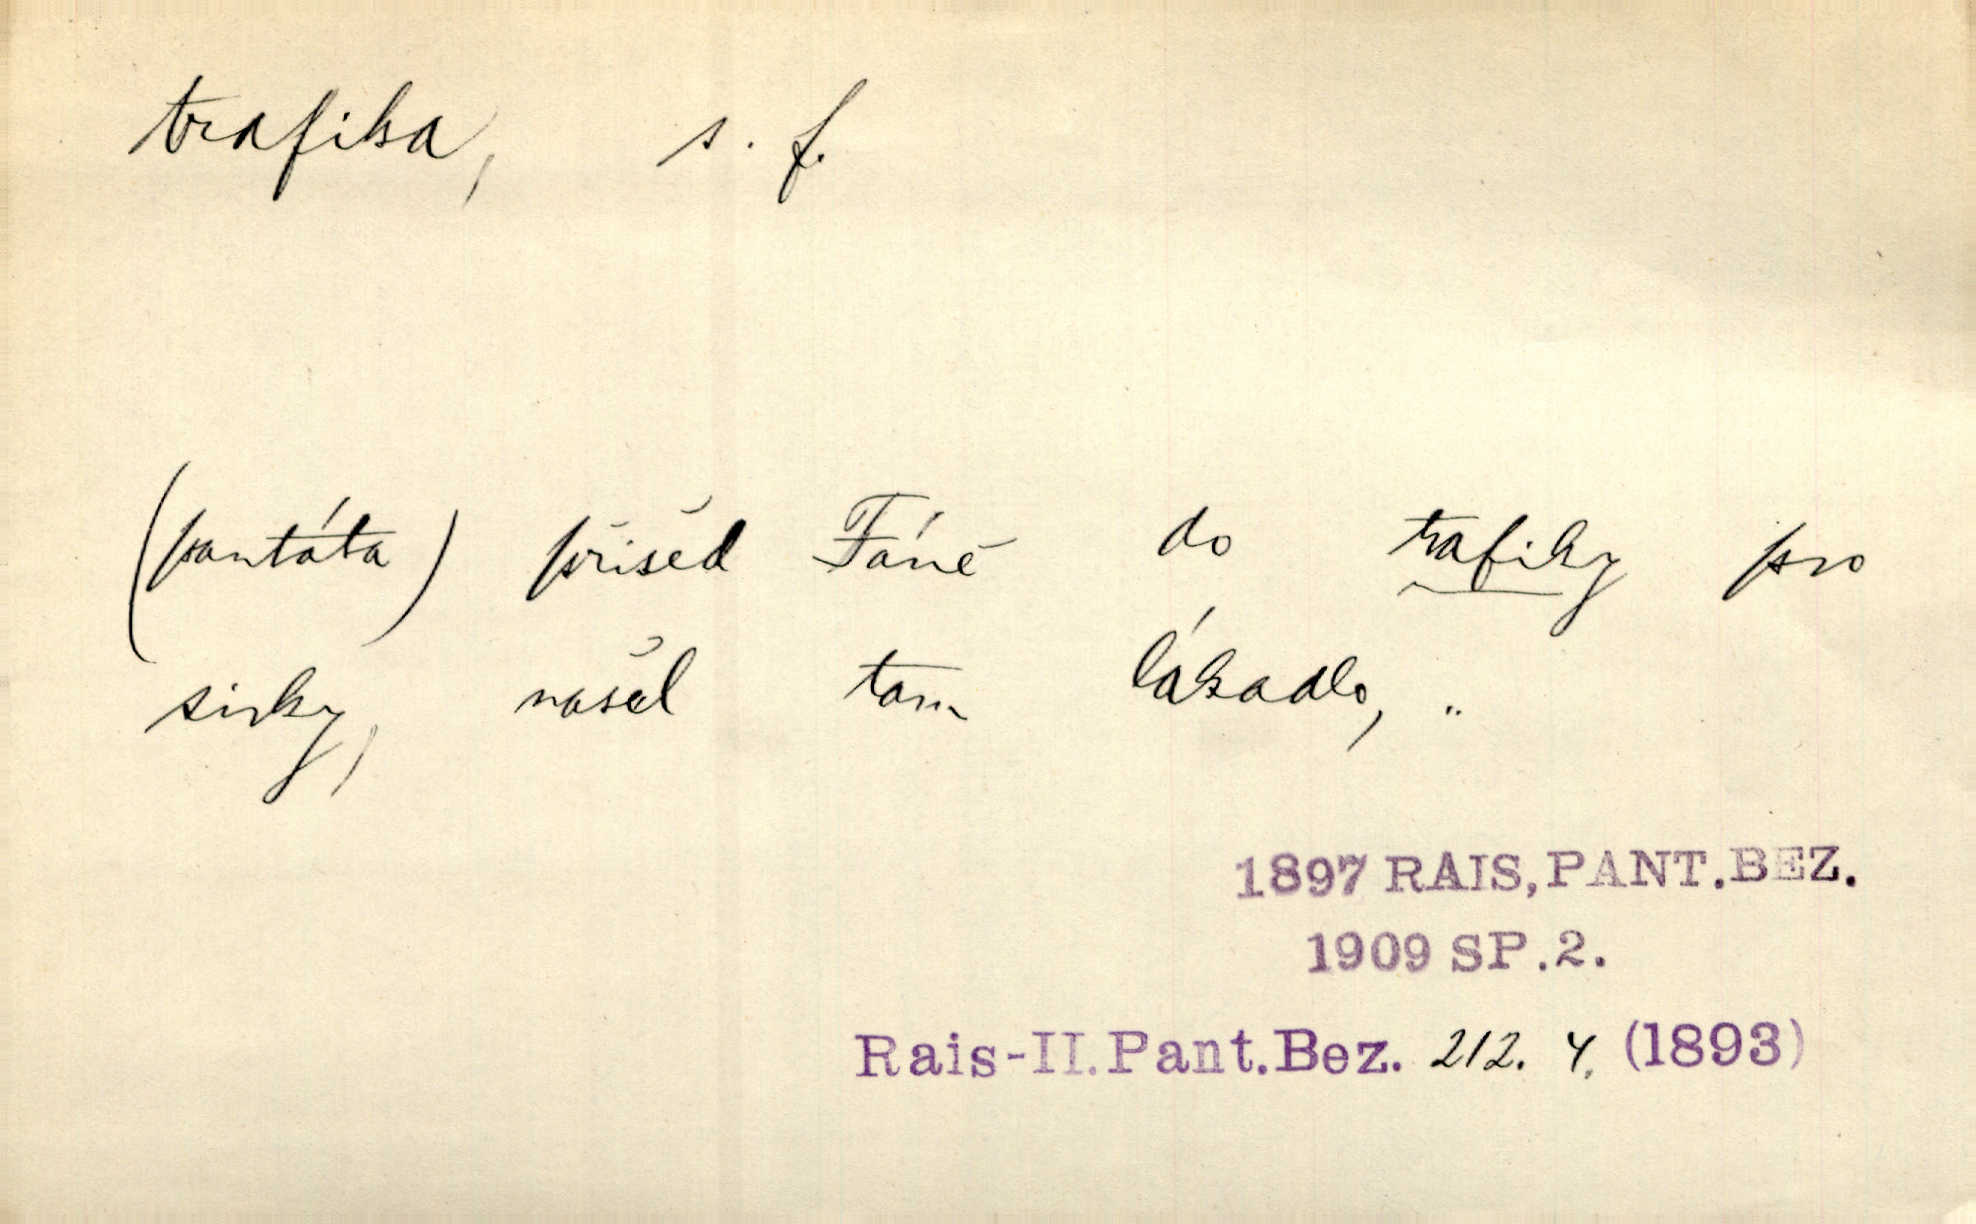 trafika, s. f.
(pantáta) přišed Fáně do trafiky pro
sirky, našel tam lákadlo, ..
1897 RAIS, PANT. BEZ.
1909 SP. 2.
Rais-II. Pant. Bez. 212. 4. (1893)